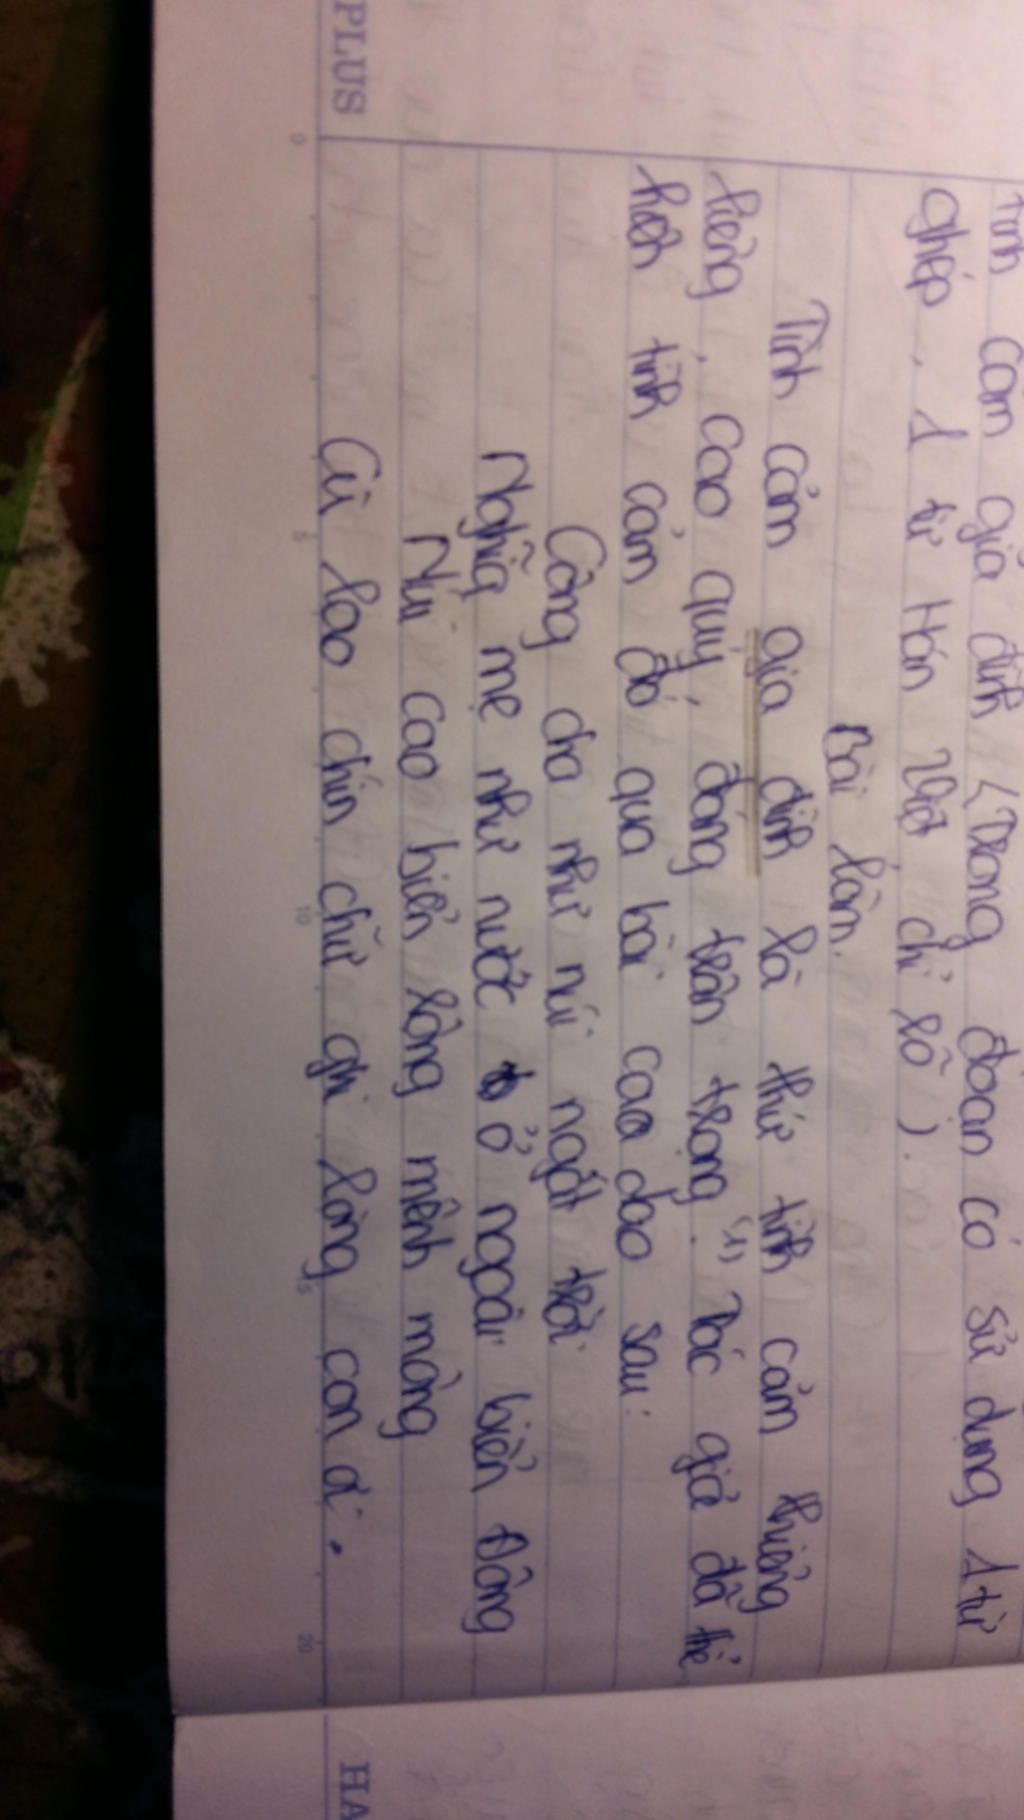 tình cảm gia đình (Trong đoạn có sử dụng 1 từ
ghép, 1 từ Hán Việt, chỉ rõ).
Bài làm.
Tình cảm gia đình là thứ tình cảm thiêng
liêng, cao quý, đáng trân trọng. (1) Tác giả đã thể
hiện tình cảm đó qua bài ca dao sau:
Công cha như núi ngất trời
Nghĩa mẹ như nước ở ngoài biển Đông
Núi cao biển rộng mênh mông
Cù lao chín chữ ghi lòng con ơi.
PLUS
0 5 10 15 20
HA